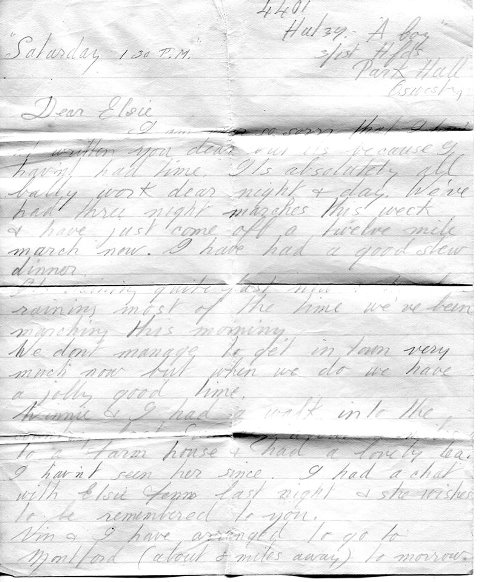 4401
Hut 39. "A Coy"
"Saturday 1.30 P.M."
3/1st H
Park Hall
Oswestry
Dear Elsie
I am so sorry that I
written you dear but its because I
havnt had time. Its absolutely all
bally work dear night & day. We've
had three night marches this week
& have just come off a twelve mile
march now. I have had a good stew
dinner.
quite
raining most of the time we've been
marching this morning
We don't manage to get in town very
much now but when we do we have
a jolly good time.
Winnie & I had a walk into the
to a farm house & had a lovely tea.
I havn't seen her since. I had a chat
with Elsie last night & she wishes
to be remembered to you.
Vin & I have arranged to go to
Montford (about miles away) to morrow.